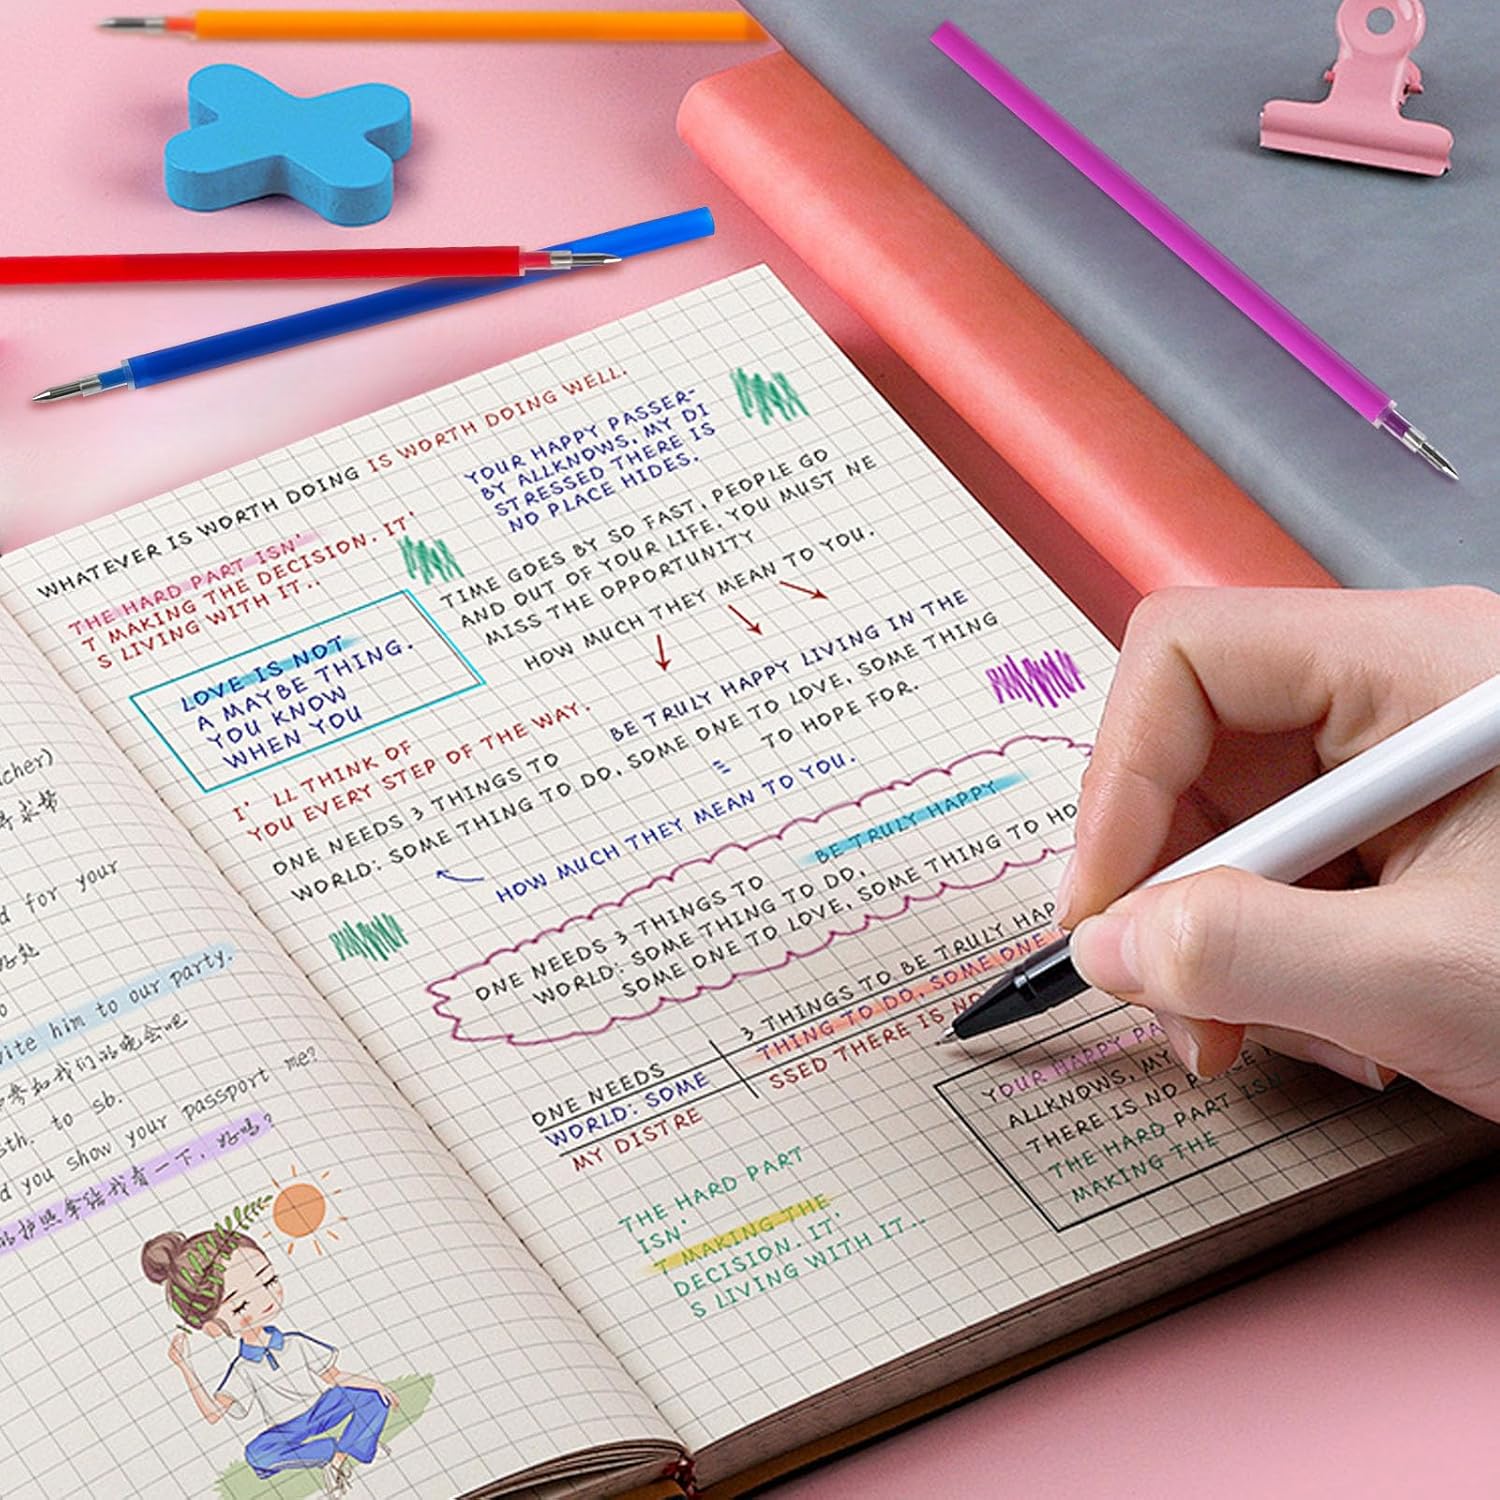 cher)
寻求帮
d for your
vite him to our party.
参加我们的晚会吧
sth. to sb.
d you show your passport me?
护照拿给我看一下，好吗？
WHATEVER IS WORTH DOING IS WORTH DOING WELL.
THE HARD PART ISN'
T MAKING THE DECISION. IT'
S LIVING WITH IT..
YOUR HAPPY PASSER-
BY ALLKNOWS, MY DI
STRESSED THERE IS
NO PLACE HIDES.
LOVE IS NOT
A MAYBE THING.
YOU KNOW
WHEN YOU
TIME GOES BY SO FAST, PEOPLE GO
AND OUT OF YOUR LIFE. YOU MUST NE
MISS THE OPPORTUNITY
HOW MUCH THEY MEAN TO YOU.
I' LL THINK OF
YOU EVERY STEP OF THE WAY.
BE TRULY HAPPY LIVING IN THE
ONE NEEDS 3 THINGS TO
WORLD: SOME THING TO DO, SOME ONE TO LOVE, SOME THING
TO HOPE FOR.
HOW MUCH THEY MEAN TO YOU.
BE TRULY HAPPY
ONE NEEDS 3 THINGS TO
WORLD: SOME THING TO DO,
SOME ONE TO LOVE, SOME THING TO HO
ONE NEEDS 3 THINGS TO BE TRULY HAP
WORLD: SOME THING TO DO, SOME ONE
MY DISTRE SSED THERE IS NO
THE HARD PART
ISN'
T MAKING THE
DECISION. IT'
S LIVING WITH IT..
YOUR HAPPY PA
ALLKNOWS, MY
THERE IS NO PLACE
THE HARD PART ISN
MAKING THE